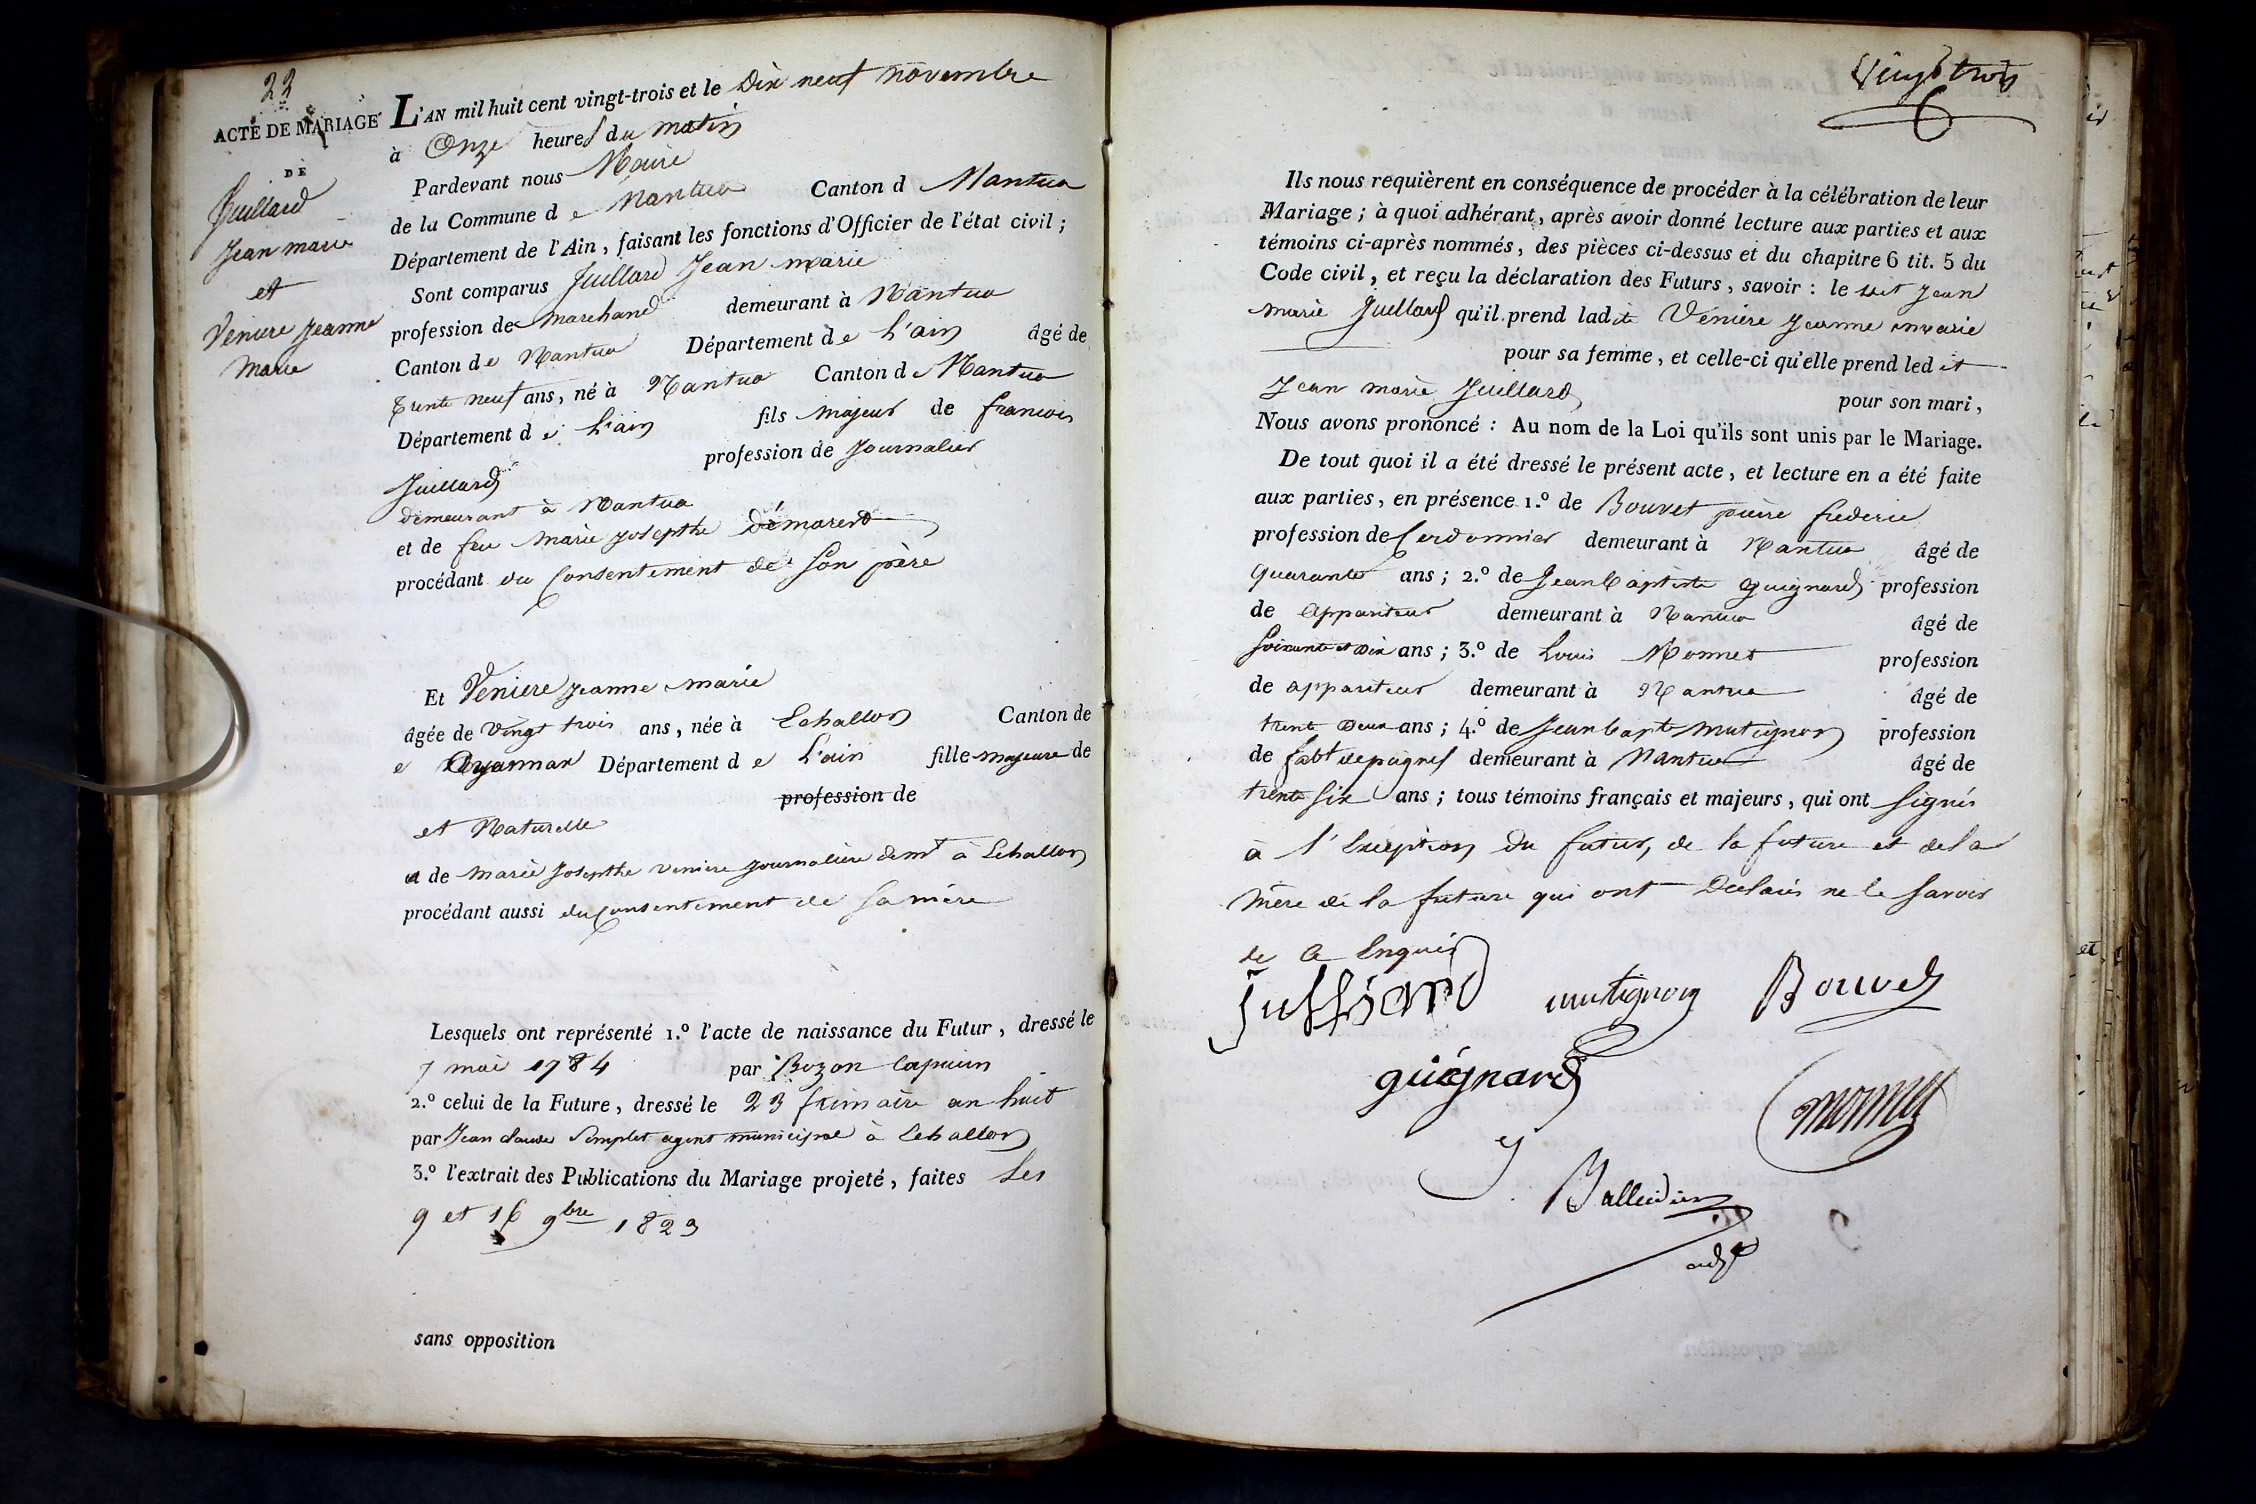 22
ACTE DE MARIAGE
DE
Juillard
Jean marie
et
Veniere Jeanne
Marie
L'AN mil huit cent vingt-trois et le Dix neuf novembre
à Onze heures du matin
Pardevant nous Maire
de la Commune d e Nantua Canton d Nantua
Département de l'Ain, faisant les fonctions d'Officier de l'état civil;
Sont comparus Juillard Jean marie
profession de marchand demeurant à Nantua
Canton de Nantua Département de L'ain âgé de
Trente neuf ans, né à Nantua Canton de Nantua
Département d e L'ain fils majeur de francois
Juillard profession de Journalier
demeurant à Nantua
et de feu Marie Josephte
procédant du Consentement de Son père
Et Veniere Jeanne marie
âgée de vingt trois ans, née à Echallon Canton de
e Oyonnax Département d e L'ain fille majeure de
profession de
et Naturelle
de Marie Josephte veniere Journaliere demt à Echallon
procédant aussi du Consentement de Sa mère
Lesquels ont représenté 1.º l'acte de naissance du Futur, dressé le
7 mai 1784 par Bozon Capucin
2.º celui de la Future, dressé le 23 frimaire an huit
par Jean claude agent municipal à Echallon
3.º l'extrait des Publications du Mariage projeté, faites Les
9 et 16 9bre 1823
sans opposition
Vingt trois
Ils nous requièrent en conséquence de procéder à la célébration de leur
Mariage; à quoi adhérant, après avoir donné lecture aux parties et aux
témoins ci-après nommés, des pièces ci-dessus et du chapitre 6 tit. 5 du
Code civil, et reçu la déclaration des Futurs, savoir: le dit Jean
marie Juillard qu'il prend lad ite Veniere Jeanne marie
pour sa femme, et celle-ci qu'elle prend led it
Jean marie Juillard pour son mari,
Nous avons prononcé: Au nom de la Loi qu'ils sont unis par le Mariage.
De tout quoi il a été dressé le présent acte, et lecture en a été faite
aux parties, en présence 1.º de Bouvet pierre frederic
profession de Cordonnier demeurant à Nantua âgé de
quarante ans; 2.º de Jean Baptiste Guignard profession
de appariteur demeurant à Nantua âgé de
Soixante et dix ans; 3.º de Louis Monnet profession
de appariteur demeurant à Nantua âgé de
trente deux ans; 4.º de Jean bapte mutignon profession
de fabt de pagnes demeurant à Nantua âgé de
trente Six ans; tous témoins français et majeurs, qui ont Signés
à l'Exception du futur, de la future et de la
mère de la future qui ont Déclarés ne le Savoir
de ce Enquis
Julliard mutignon Bouvet
guignard monnet
Balleidier
adjt